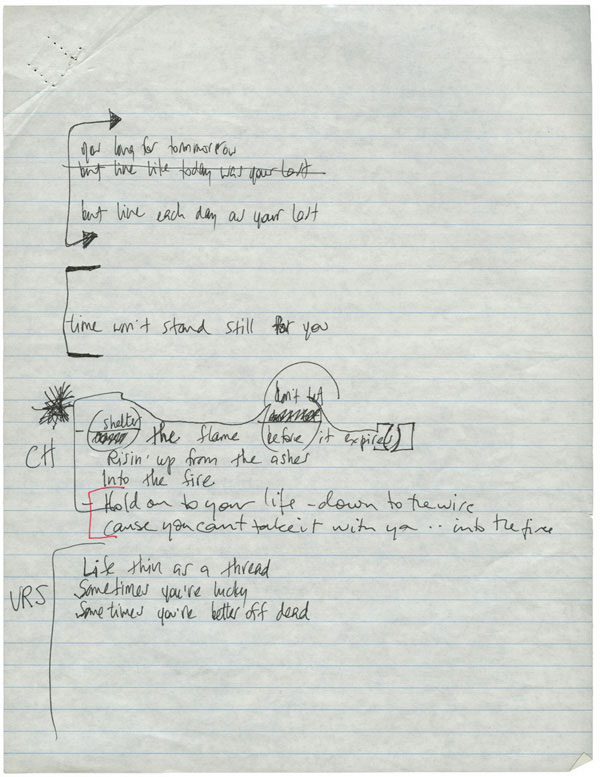 long for tommorrow
but live like today was your last
but live each day as your last
time won't stand still for you
don't let
shelter
CH
the flame before it expire(s)
Risin' up from the ashes
Into the fire
Hold on to your life - down to the wire
cause you can't take it with ya .. into the fire
VRS
Life thin as a thread
Sometimes you're lucky
Sometimes you're better off dead